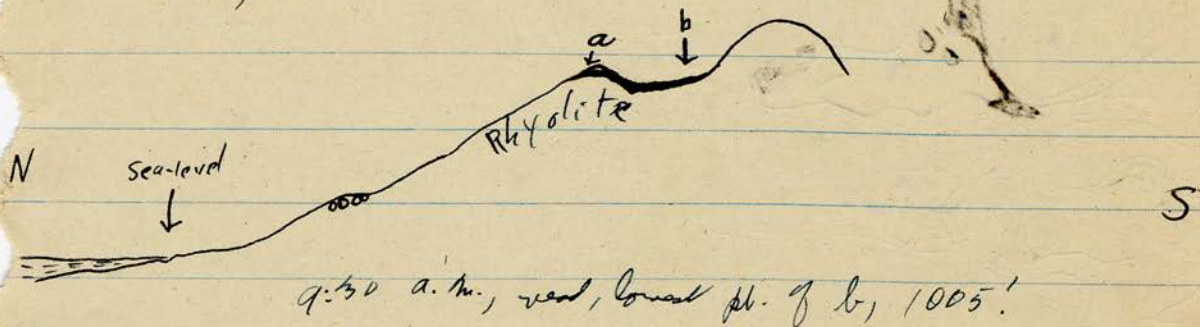 b
a
Rhyolite
N
sea-level
S
9:30 a.m., read, lowest pt. of b, 1005'